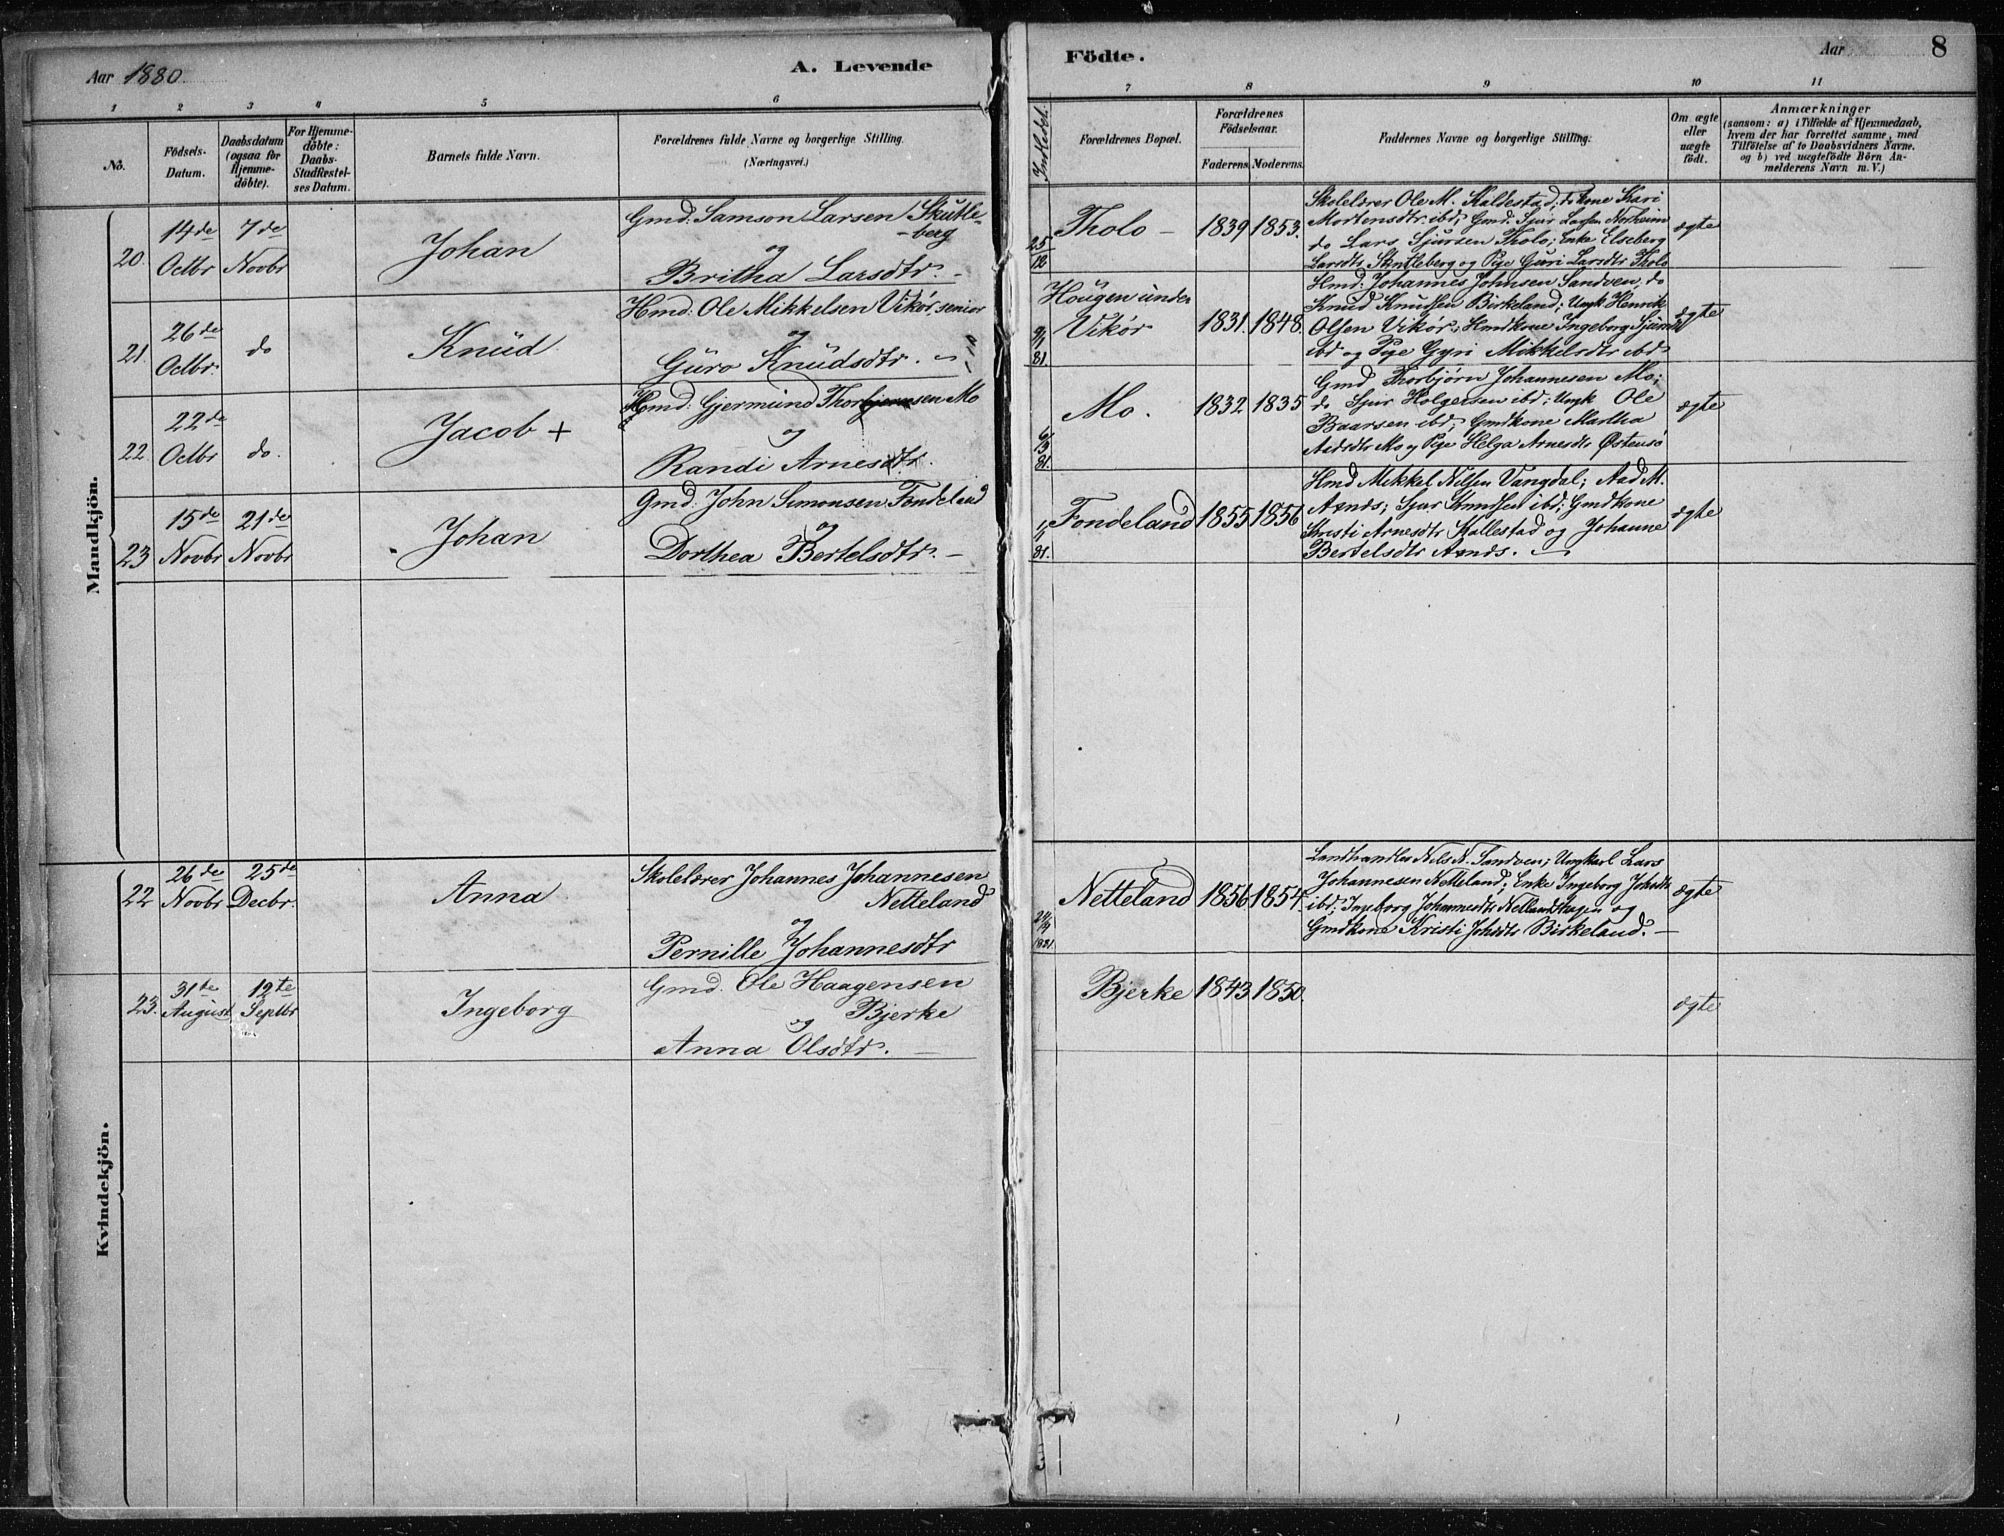 Aar 1880.
A. Levende
Födte.
Aar
8
1 2 3 4 5 6
7 8 9 10 11
No.
Födsels-
Datum.
Daabsdatum
(ogsaa for
Hjemme-
döbte).
For Hjemme-
döbte:
Daabs-
Stadfæstel-
ses Datum.
Barnets fulde Navn.
Forældrenes fulde Navne og borgerlige Stilling.
(Næringsvei.)
Indledet.
Forældrenes Bopæl.
Forældrenes
Födselsaar.
Faderens. Moderens.
Faddernes Navne og borgerlige Stilling.
Om ægte
eller
uægte
födt.
Anmærkninger
(saasom: a) i Tilfælde af Hjemmedaab,
hvem der har forrettet samme, med
Tilföielse af to Daabsvidners Navne.
og b) ved uægtefödte Börn An-
melderens Navn m. V.)
Mandkjön.
20.
14de
Octbr
7de
Novbr
Johan
Gmd: Samson Larsen Skutle-
-berg
og
Britha Larsdtr. -
25/12
Tholo -
1839 1853.
Skolelærer Ole M. Kaldestad; do Ane Kari
Mortensdtr ibd; Gmd: Sjur Larsen Norheim
do Lars Sjursen Tholo; Enke Elseberg
Larsdtr Skutleberg og Pge Guri Larsdtr Tholo
ægte
21.
26de
Octbr.
do
Knud
Hmd: Ole Mikkelsen Vikör, senior
og
Guro Knudsdtr. -
9/1 81.
Hougen under
Vikör
1831. 1848.
Hmd: Johannes Johnsen Sandven; do
Knud Knudsen Birkeland; Ungk Henrik
Olsen Vikör; Hmdkone Ingeborg
ibd og Pge Gyri Mikkelsdtr ibd
ægte
22.
22de
Octbr
do.
Jacob +
Hmd: Gjermund Thorbjørnsen Mo
og
Randi Arnesdtr.
6/3 81.
Mo.
1832 1835
Gmd Thorbjørn Johannesen Mo;
do Sjur Holgersen ibd; Ungk Ole
Baarsen ibd; Gmdkone Martha
Mo og Pge Helga Arnesdtr Østensø
ægte
23
15de
Novbr
21de
Novbr
Johan
Gmd: John Simonsen Fondeland
og
Dorthea Bertelsdtr. -
1/1 81.
Fondeland
1855 1856
Hmd Mekkel Nilsen Vangdal; Aad M.
Axnds; Sjur Knudsen ibd; Gmdkone
Kristi Arnesdtr Kallestad og Johanne
Bertelsdtr Axnds. -
ægte
Kvindekjön.
22
26de
Novbr
25de
Decbr.
Anna
Skolelærer Johannes Johannesen
Netteland
og
Pernille Johannesdtr
1881.
Netteland
1856. 1854.
Landhandler Nils N. Sandven; Ungkarl Lars
Johannesen Netteland; Enke Ingeborg Johsdtr
ibd; Ingeborg Johannesdtr og
Gmdkone Kristi Johsdtr Birkeland. -
ægte
23.
31te
August
12te
Septbr
Ingeborg
Gmd. Ole Haagensen
Bjerke
og
Anna Olsdtr. -
Bjerke
1843. 1850.
ægte